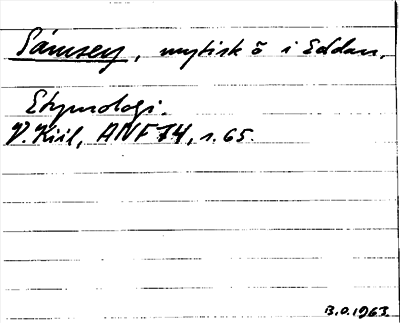 Sámsey, mytisk ö i Eddan.
Etymologi.
V. Kiil, ANF 74, s. 65.
B.O. 1963